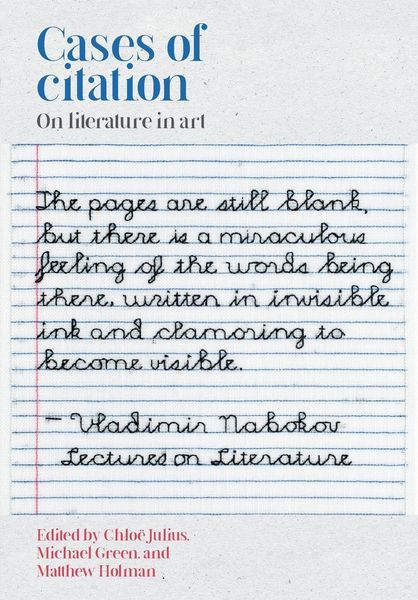 Cases of
citation
On literature in art
The pages are still blank,
but there is a miraculous
feeling of the words being
there, written in invisible
ink and clamoring to
become visible.
– Vladimir Nabokov
Lectures on Literature
Edited by Chloë Julius,
Michael Green, and
Matthew Holman